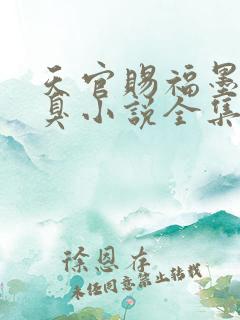 天官赐福墨
真小说全集
徐恩存
未经同意禁止转载